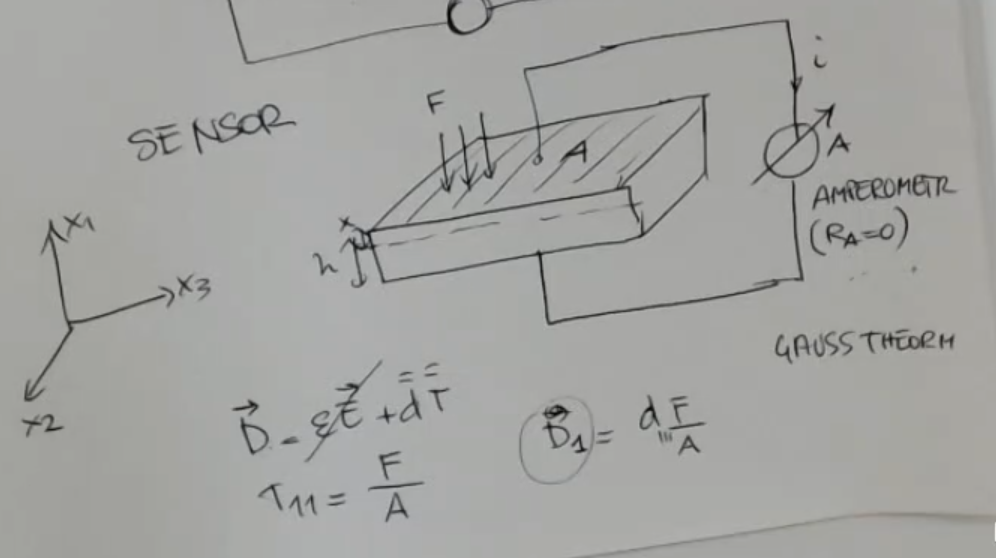 SENSOR
F
i
A
A
AMPEROMETR
(RA=0)
x
h
x1
x3
x2
GAUSS THEORM
D = εE + dT
D1 = d111 F/A
T11 = F/A